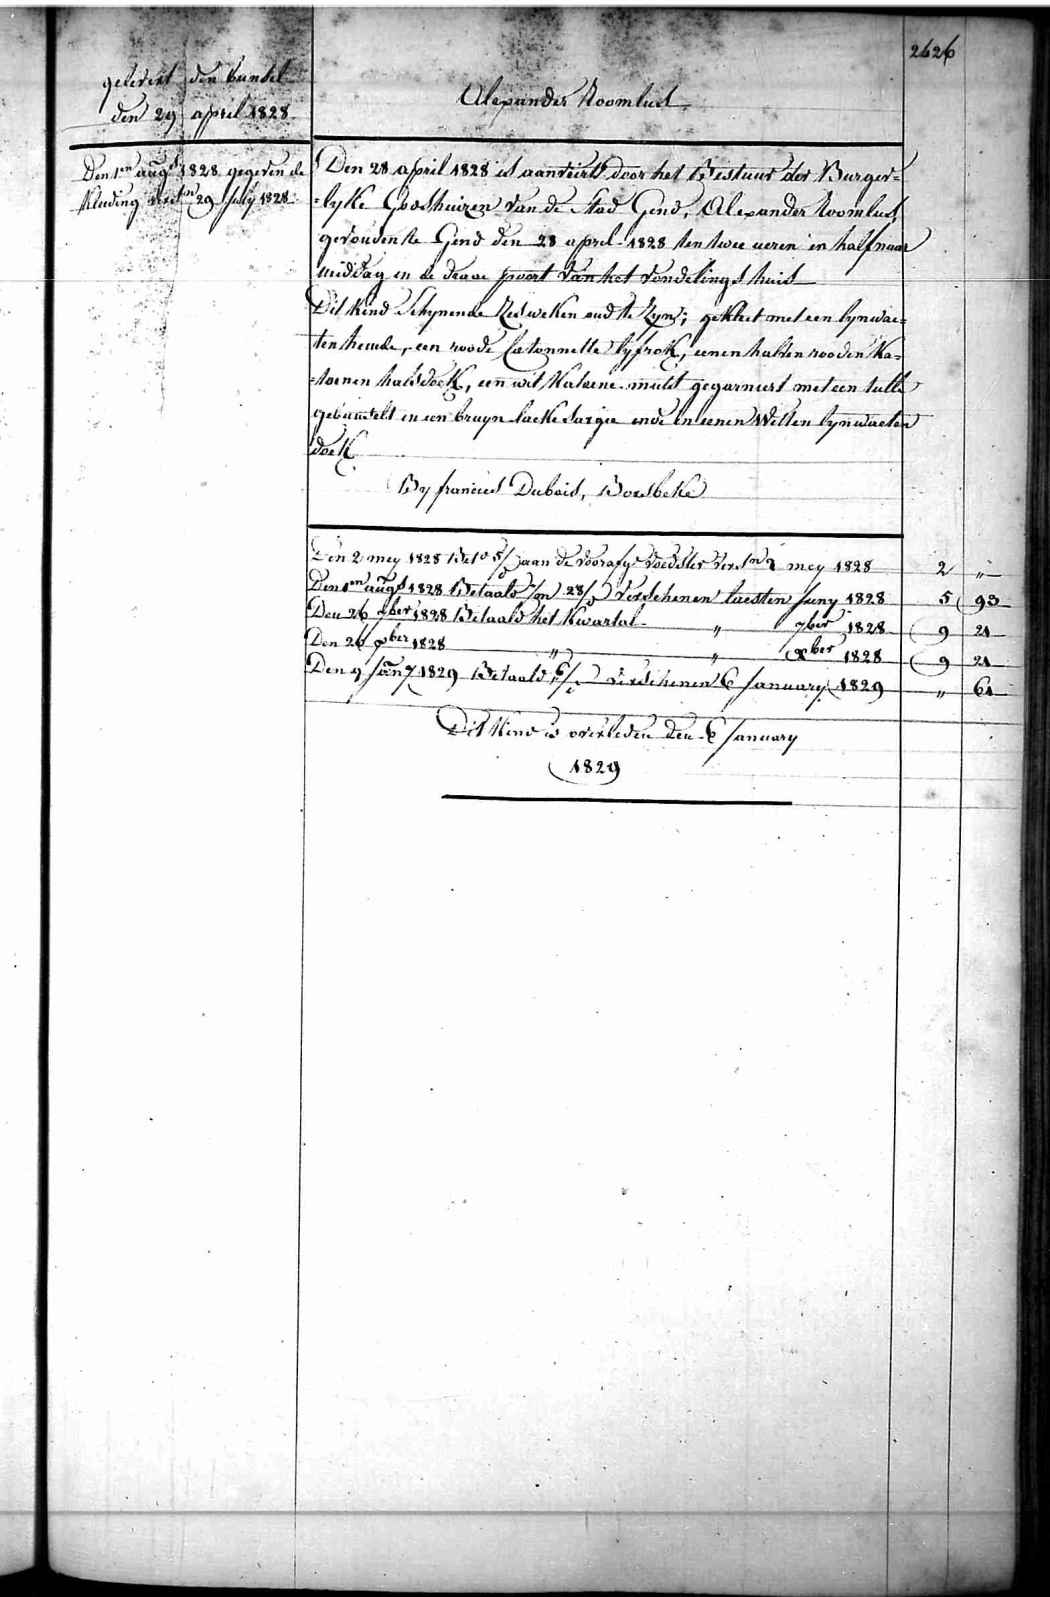 2626
gelevert den bundel
den 29 april 1828
Den 1en augt 1828 gegeven de
kleding 29 july 1828
Alexander Roomlust
Den 28 april 1828 is aanveird door het Bestuur der Burger=
=lyke Godshuizen van de Stad Gend, Alexander Roomlust
gevonden te Gend den 28 april 1828 ten twee ueren en half naar
middag in de draae poort van het vondelings huis
Dit kind schynende zes weken oud te zyn; gekleet met een lynwae=
ten hemde, een roode Catonnette lyfrok, eenen halven rooden ka=
=toenen halsdoek, een wit katoene muts gegarneert met een tulle
gebusselt in een bruyn laeke sargie ende in eenen witten lynwaeten
doek
By francies Dubois, Borsbeke
Den 2 mey 1828 Bet d aan de voorafge voedster mey 1828 2 "
Den 1en augt 1828 Betaald verschenen laesten Juny 1828 5 93
Den 26 7ber 1828 Betaald het kwartal " 7ber 1828 9 21
Den 26 xber 1828 " " xber 1828 9 21
Den 9 Jany 1829 Betaald verschenen 6 January 1829 " 61
Dit kind is overleden den 6 January
1829